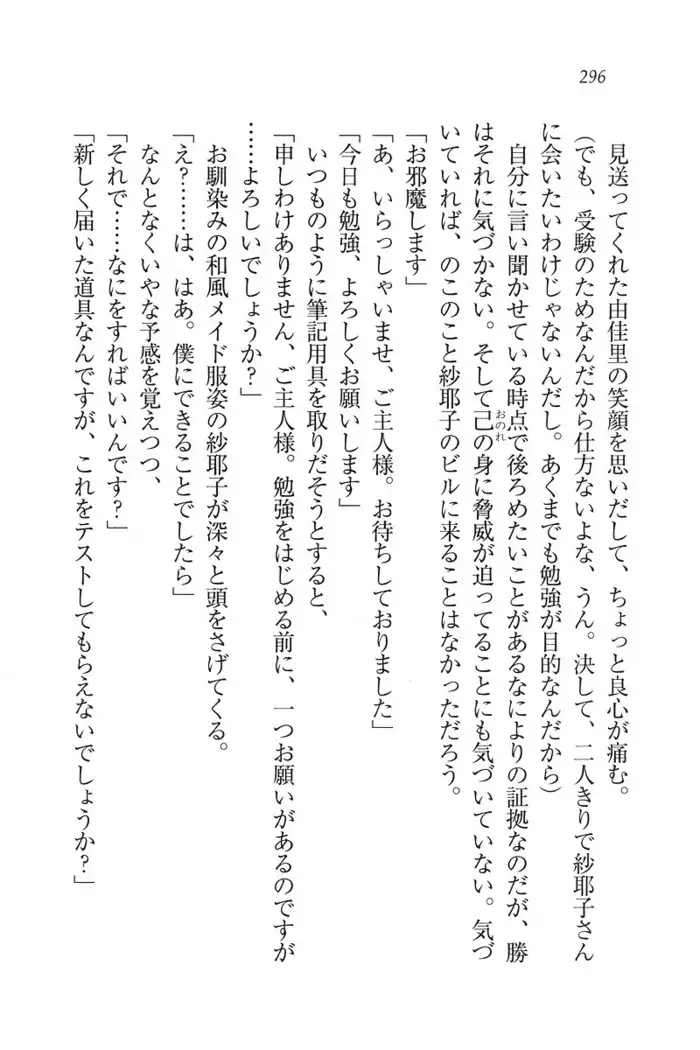 296
見送ってくれた由佳里の笑顔を思いだして、ちょっと良心が痛む。
(でも、受験のためなんだから仕方ないよな、うん。決して、二人きりで紗耶子さん
に会いたいわけじゃないんだし。あくまでも勉強が目的なんだから)
自分に言い聞かせている時点で後ろめたいことがあるなによりの証拠なのだが、勝
はそれに気づかない。そして己の身に脅威が迫ってることにも気づいていない。気づ
おのれ
いていれば、のこのこと紗耶子のビルに来ることはなかっただろう。
「お邪魔します」
「あ、いらっしゃいませ、ご主人様。お待ちしておりました」
「今日も勉強、よろしくお願いします」
いつものように筆記用具を取りだそうとすると、
「申しわけありません、ご主人様。勉強をはじめる前に、一つお願いがあるのですが
……よろしいでしょうか?」
お馴染みの和風メイド服姿の紗耶子が深々と頭をさげてくる。
「え?……は、はあ。僕にできることでしたら」
なんとなくいやな予感を覚えつつ、
「それで……なにをすればいいんです?」
「新しく届いた道具なんですが、これをテストしてもらえないでしょうか?」